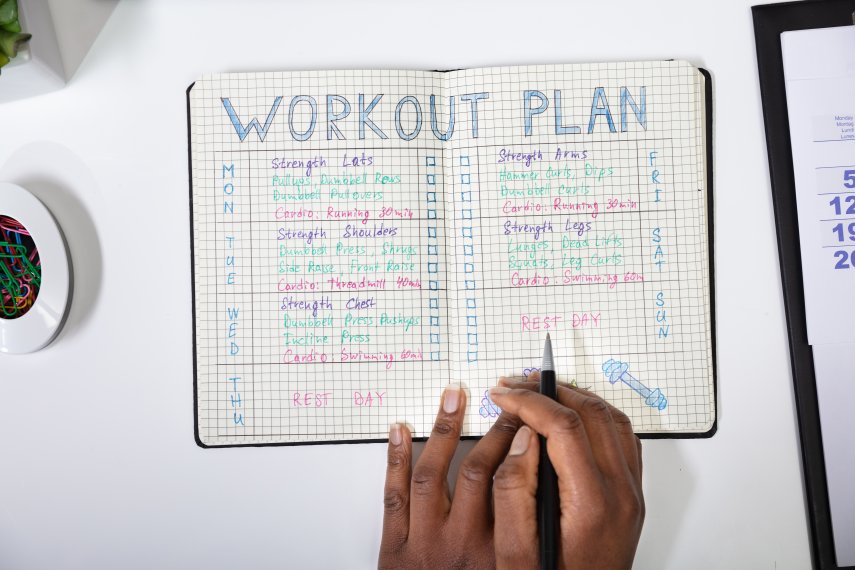 WORKOUT PLAN
MON
Strength Lats
Pullups, Dumbbell Rows
Dumbbell Pullovers
Cardio: Running 30min
TUE
Strength Shoulders
Dumbbell Press, Shrugs
Side Raise, Front Raise
Cardio: Threadmill 40min
WED
Strength Chest
Dumbbell Press Pushups
Incline Press
Cardio: Swimming 60min
THU
REST DAY
FRI
Strength Arms
Hammer Curls, Dips
Dumbbell Curls
Cardio: Running 30min
SAT
Strength Legs
Lunges, Dead Lifts
Squats, Leg Curls
Cardio: Swimming 60m
SUN
REST DAY
Monday
Montag
Lundi
Lunes
5
12
19
26